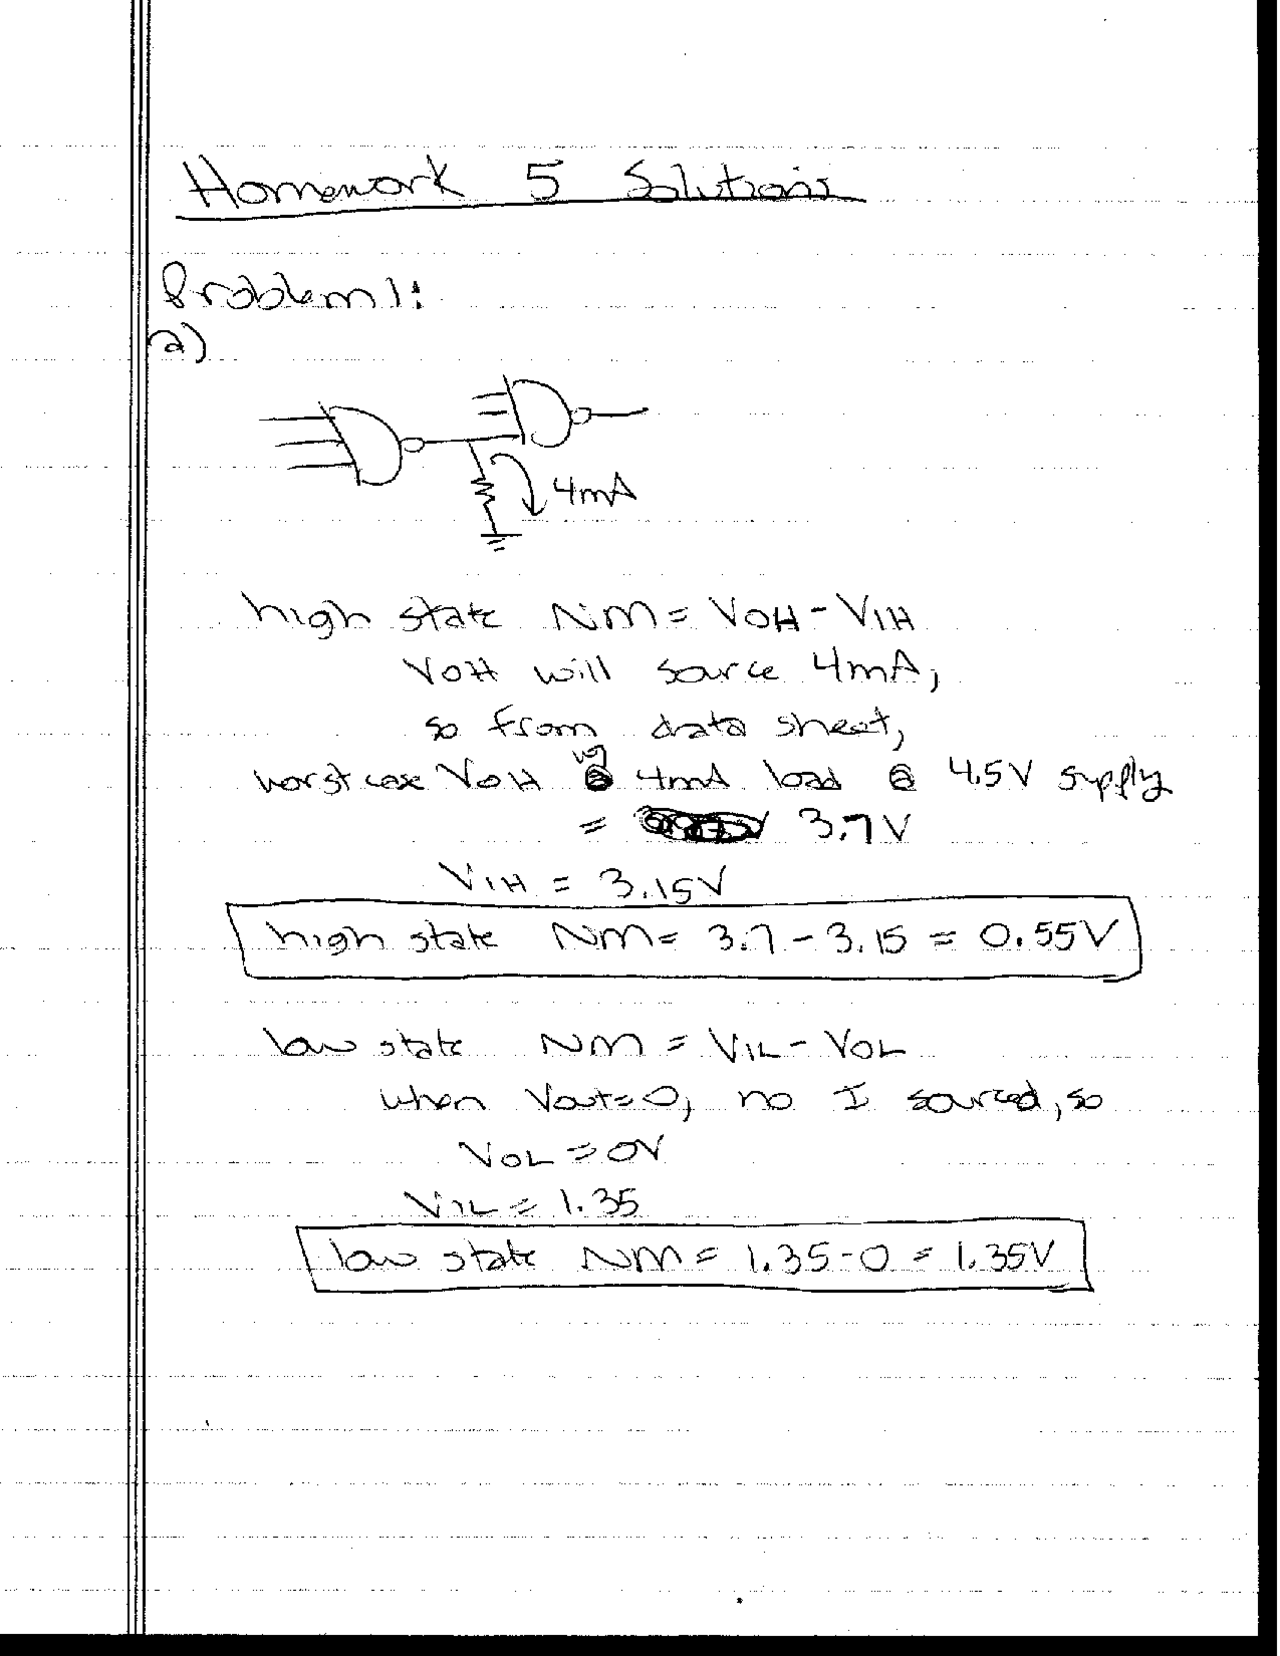 Homework 5 Solutions
Problem 1:
a)
4mA
high state NM = VOH - VIH
VOH will source 4mA,
so from data sheet,
worst case VOH w/ 4mA load @ 4.5V supply
= 3.7V
VIH = 3.15V
high state NM = 3.7 - 3.15 = 0.55V
low state NM = VIL - VOL
when Vout=0, no I sourced, so
VOL = 0V
VIL = 1.35
low state NM = 1.35 - 0 = 1.35V